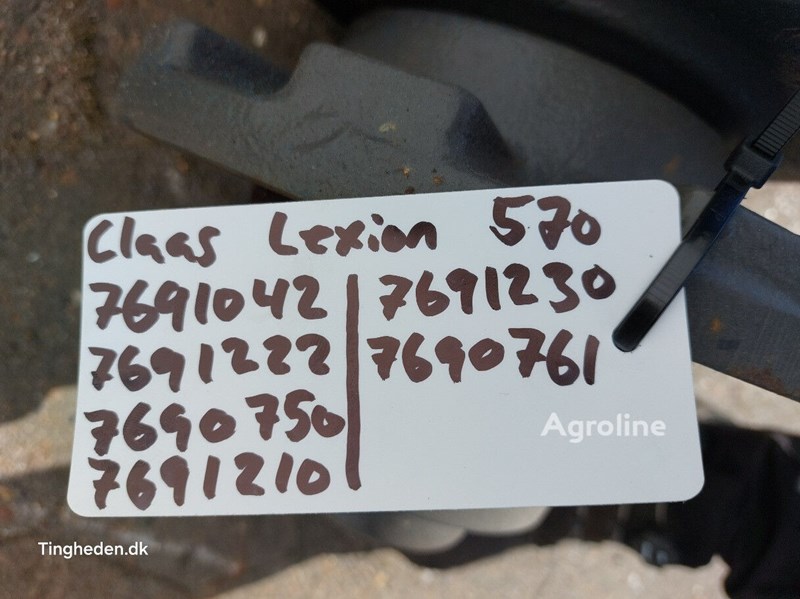 Claas Lexion 570
7691042
7691222
7690750
7691210
7691230
7690761
Agroline
Tingheden.dk